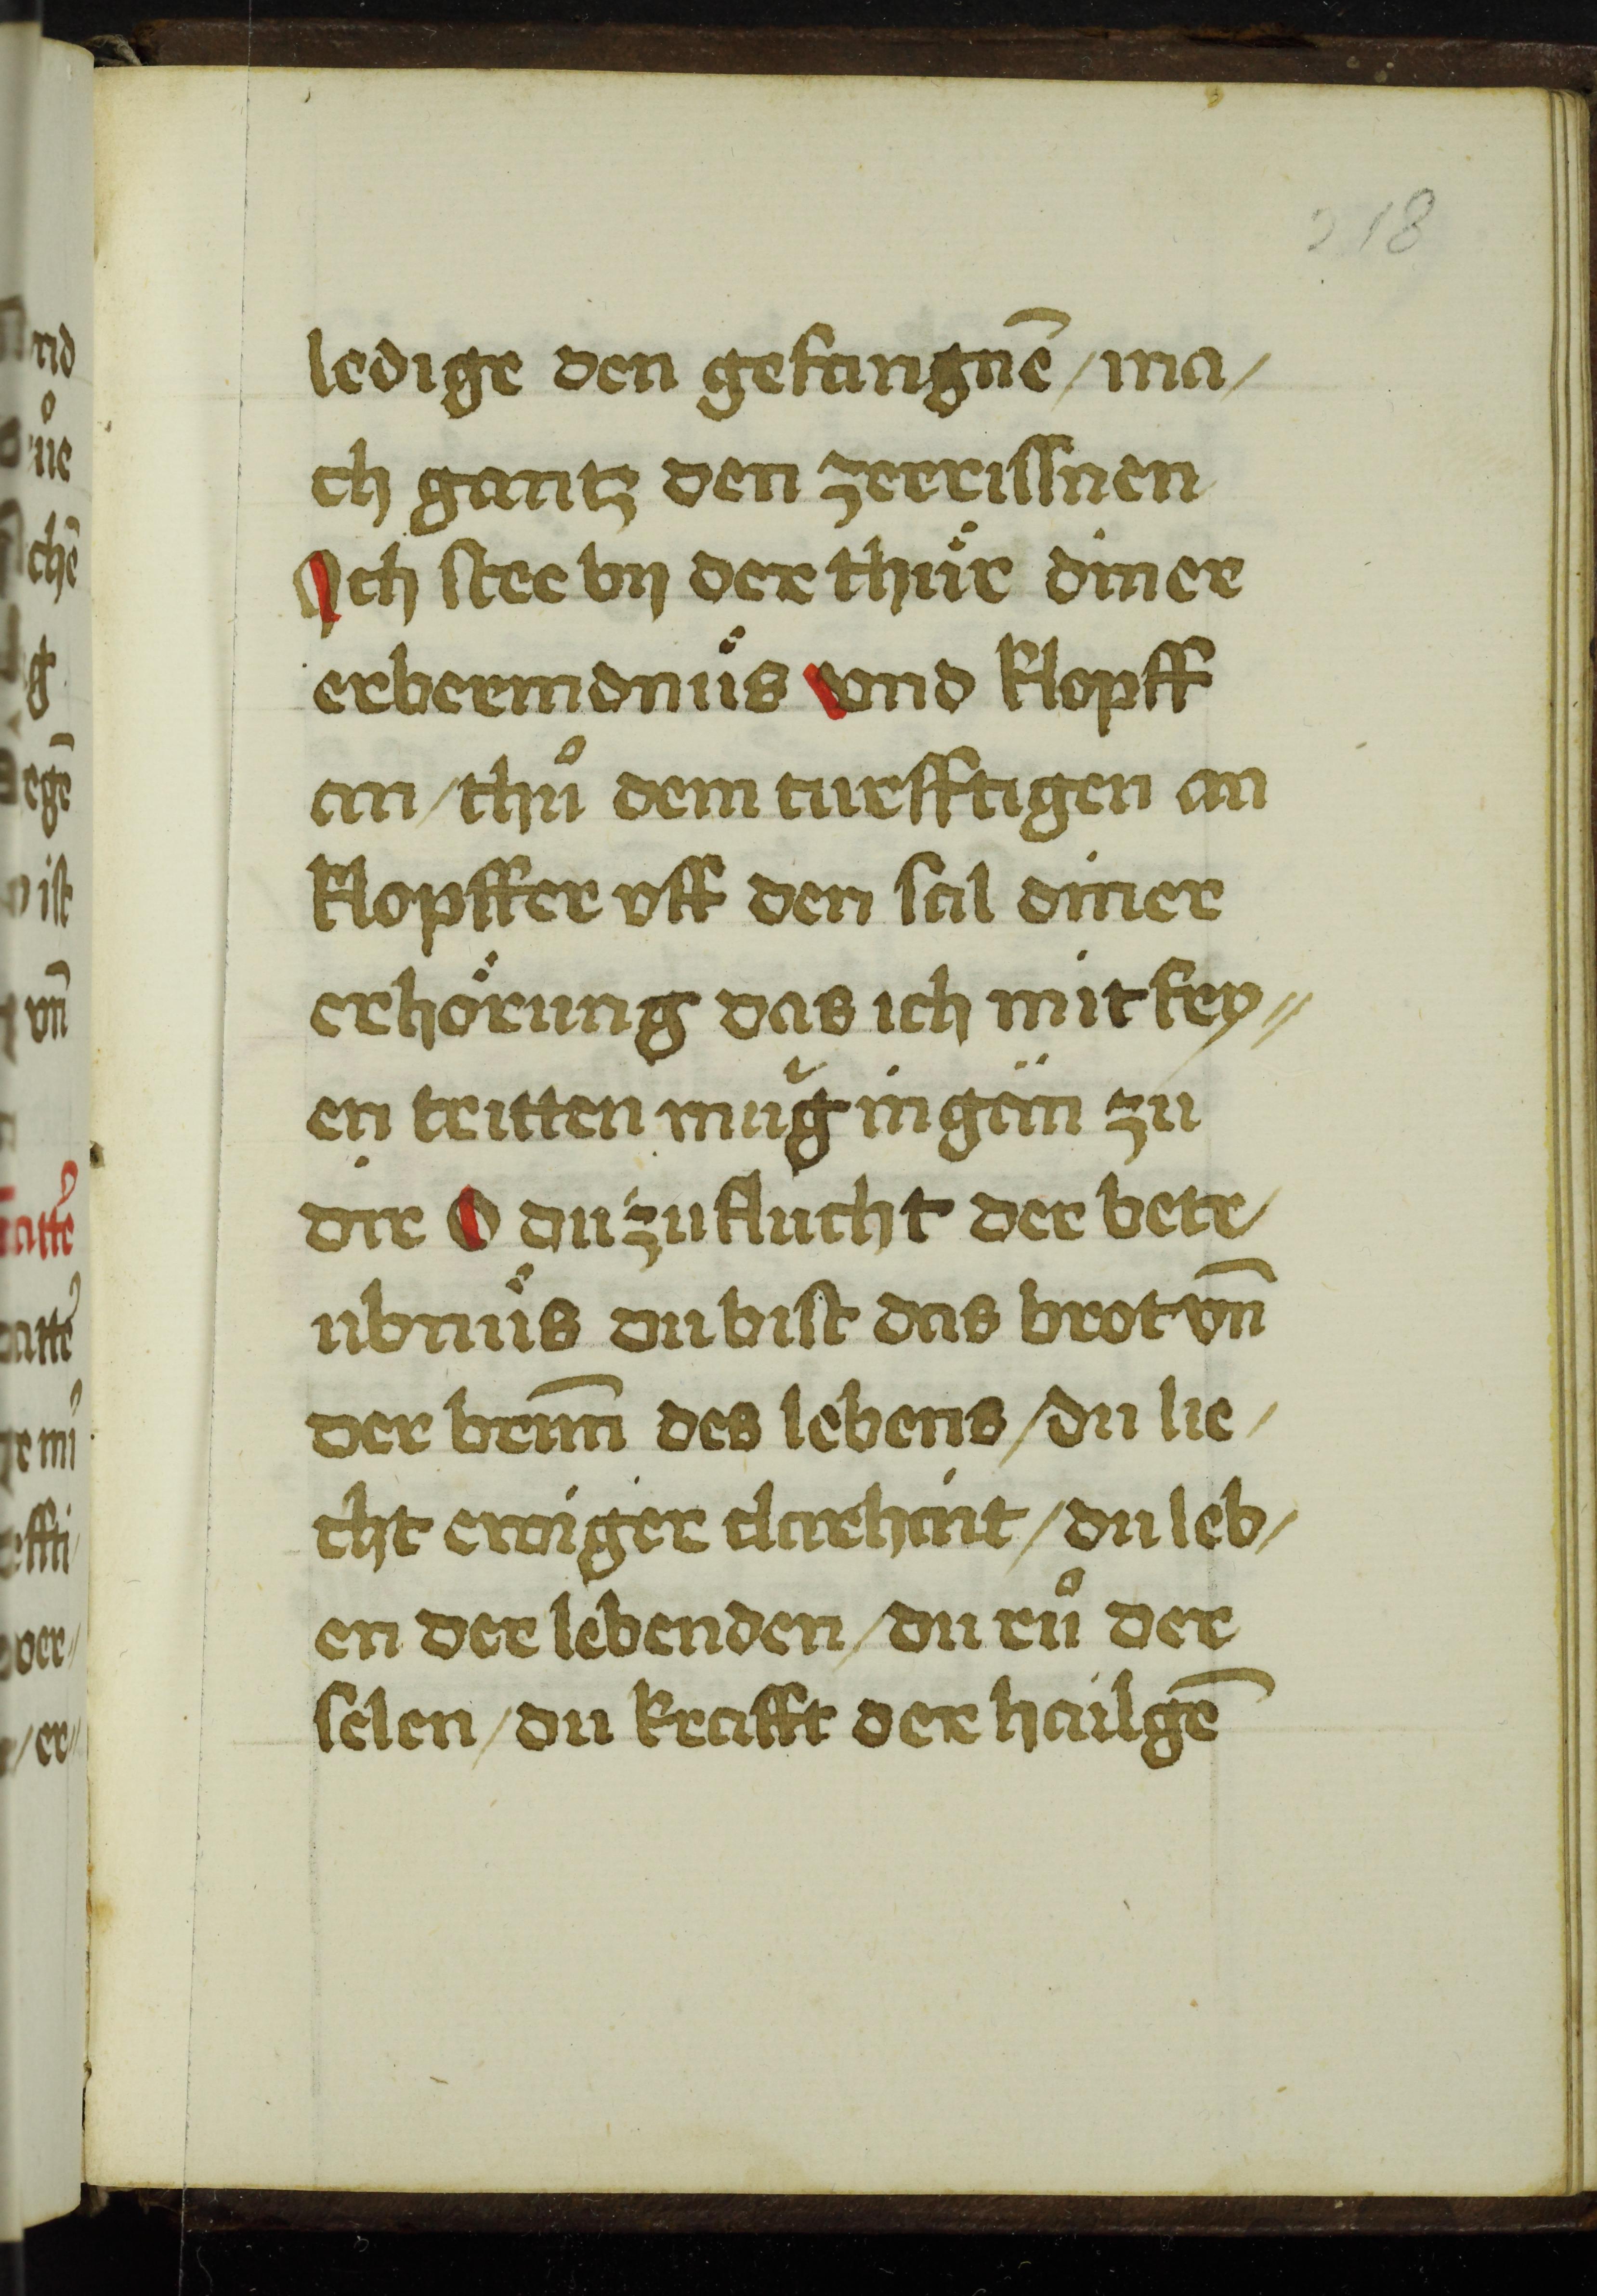 218
ledige den gefangnē / ma /
ch gantz den zerrissnen
Ich stee by der thuͤr diner
erbermdnuͤs vnd klopff
an / thuͦ dem turfftigen an
klopffer vff den sal diner
erhoͤrung das ich mit frey //
en tritten mug ingän zu
dir O du zuflucht der betr /
ubnuͤs du bist das brot vn̄
der brun̄ des lebens / du lie /
cht ewiger clarhait / du leb /
en der lebenden / du ruͦ der
selen / du krafft der hailgē